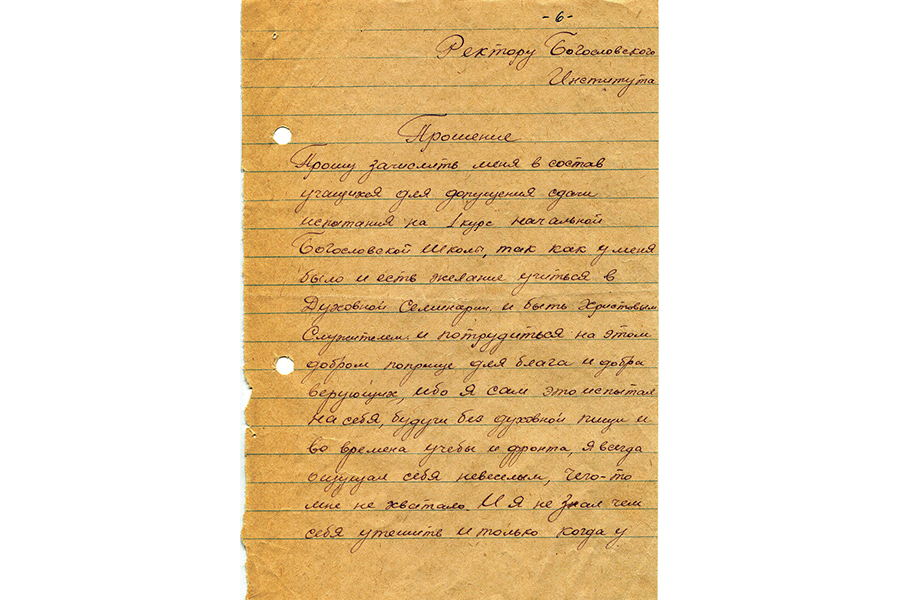 -6-
Ректору Богословского
Института
Прошение
Прошу зачислить меня в состав
учащихся для допущения сдачи
испытания на 1 курс начальной
Богословской Школы, так как у меня
было и есть желание учиться в
Духовной Семинарии и быть Христовым
Служителем и потрудиться на этом
добром поприще для блага и добра
верующих, ибо я сам это испытал
на себя, будучи без духовной пищи и
во времена учебы и фронта, я всегда
ощущал себя невеселым, чего-то
мне не хватало. И я не знал чем
себя утешить и только когда у